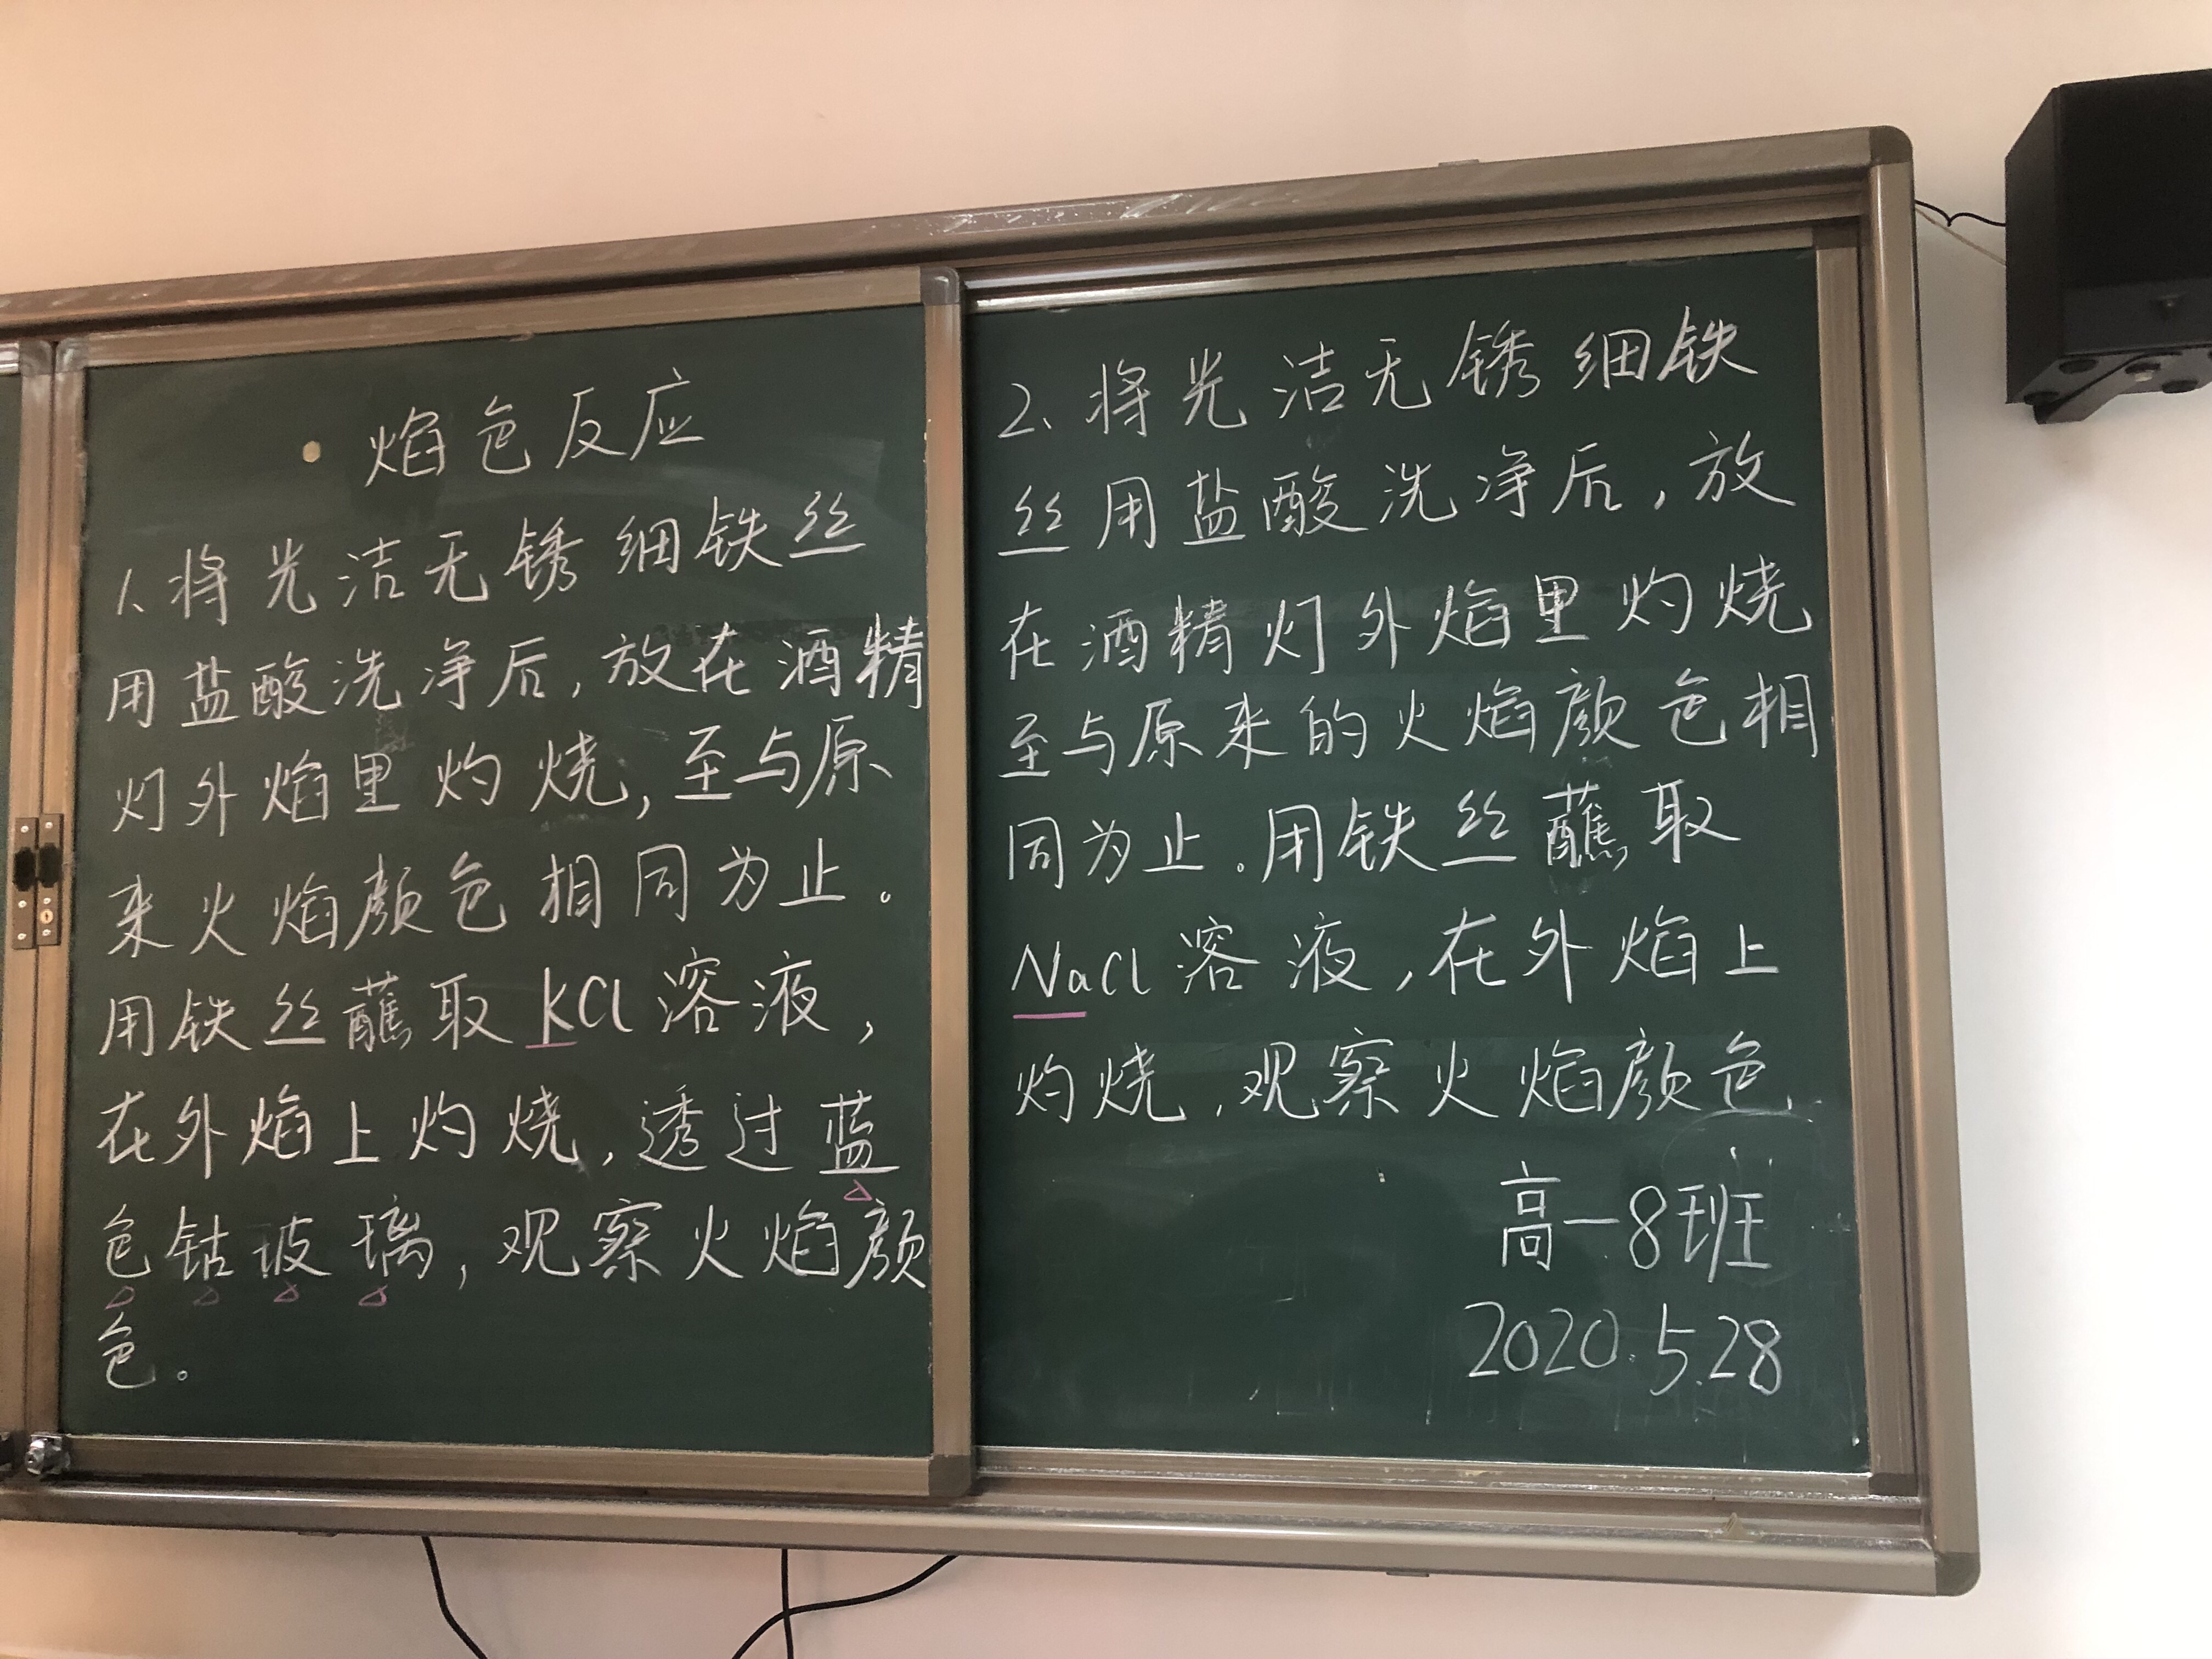 焰色反应
1、将光洁无锈细铁丝
用盐酸洗净后，放在酒精
灯外焰里灼烧，至与原
来火焰颜色相同为止。
用铁丝蘸取KCl溶液，
在外焰上灼烧，透过蓝
色钴玻璃，观察火焰颜
色。
2、将光洁无锈细铁
丝用盐酸洗净后，放
在酒精灯外焰里灼烧
至与原来的火焰颜色相
同为止。用铁丝蘸取
NaCl溶液，在外焰上
灼烧，观察火焰颜色.
高一8班
2020.5.28